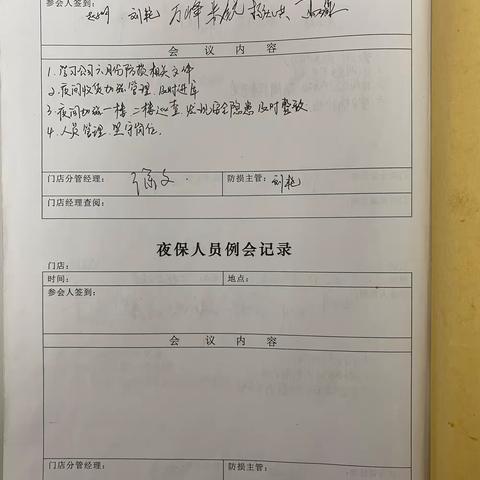 参会人签到： 刘艳 万峰
会 议 内 容
1. 学习公司六月份防损相关文件
2. 夜间收货加强管理，及时进库
3. 夜间加强一楼、二楼巡查，发现安全隐患及时整改
4. 人员管理，坚守岗位。
门店分管经理： 防损主管： 刘艳
门店经理查阅：
夜保人员例会记录
门店：
时间： 地点：
参会人签到：
会 议 内 容
门店分管经理： 防损主管：